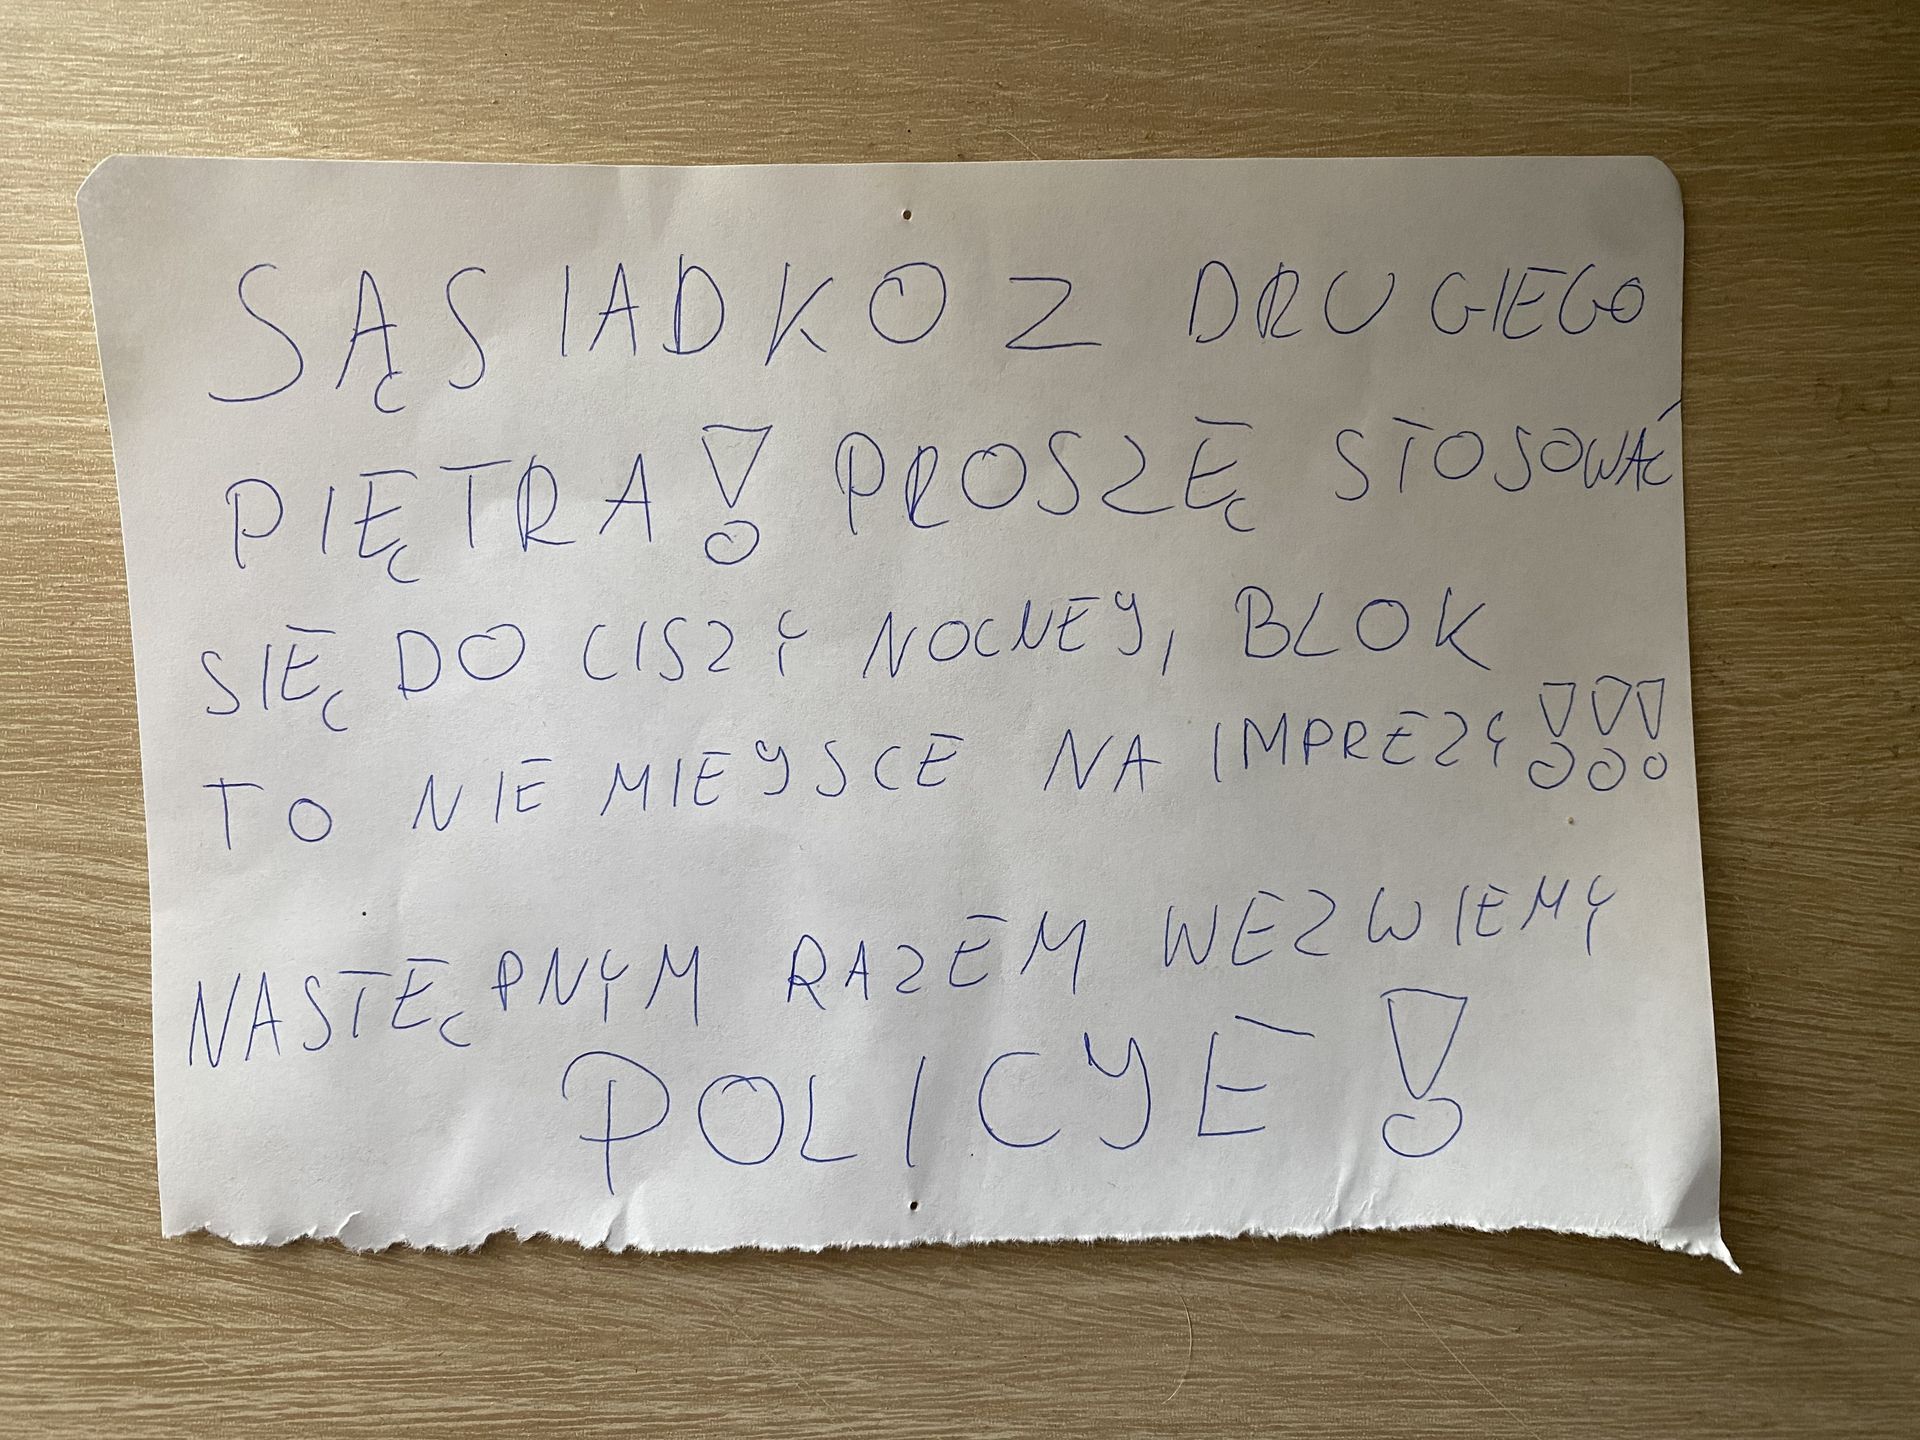 SĄSIADKO Z DRUGIEGO
PIĘTRA! PROSZĘ STOSOWAĆ
SIĘ DO CISZY NOCNEY, BLOK
TO NIE MIEYSCE NA IMPREZY!!!
NASTĘPNYM RAZEM WEZWIEMY
POLICYE!